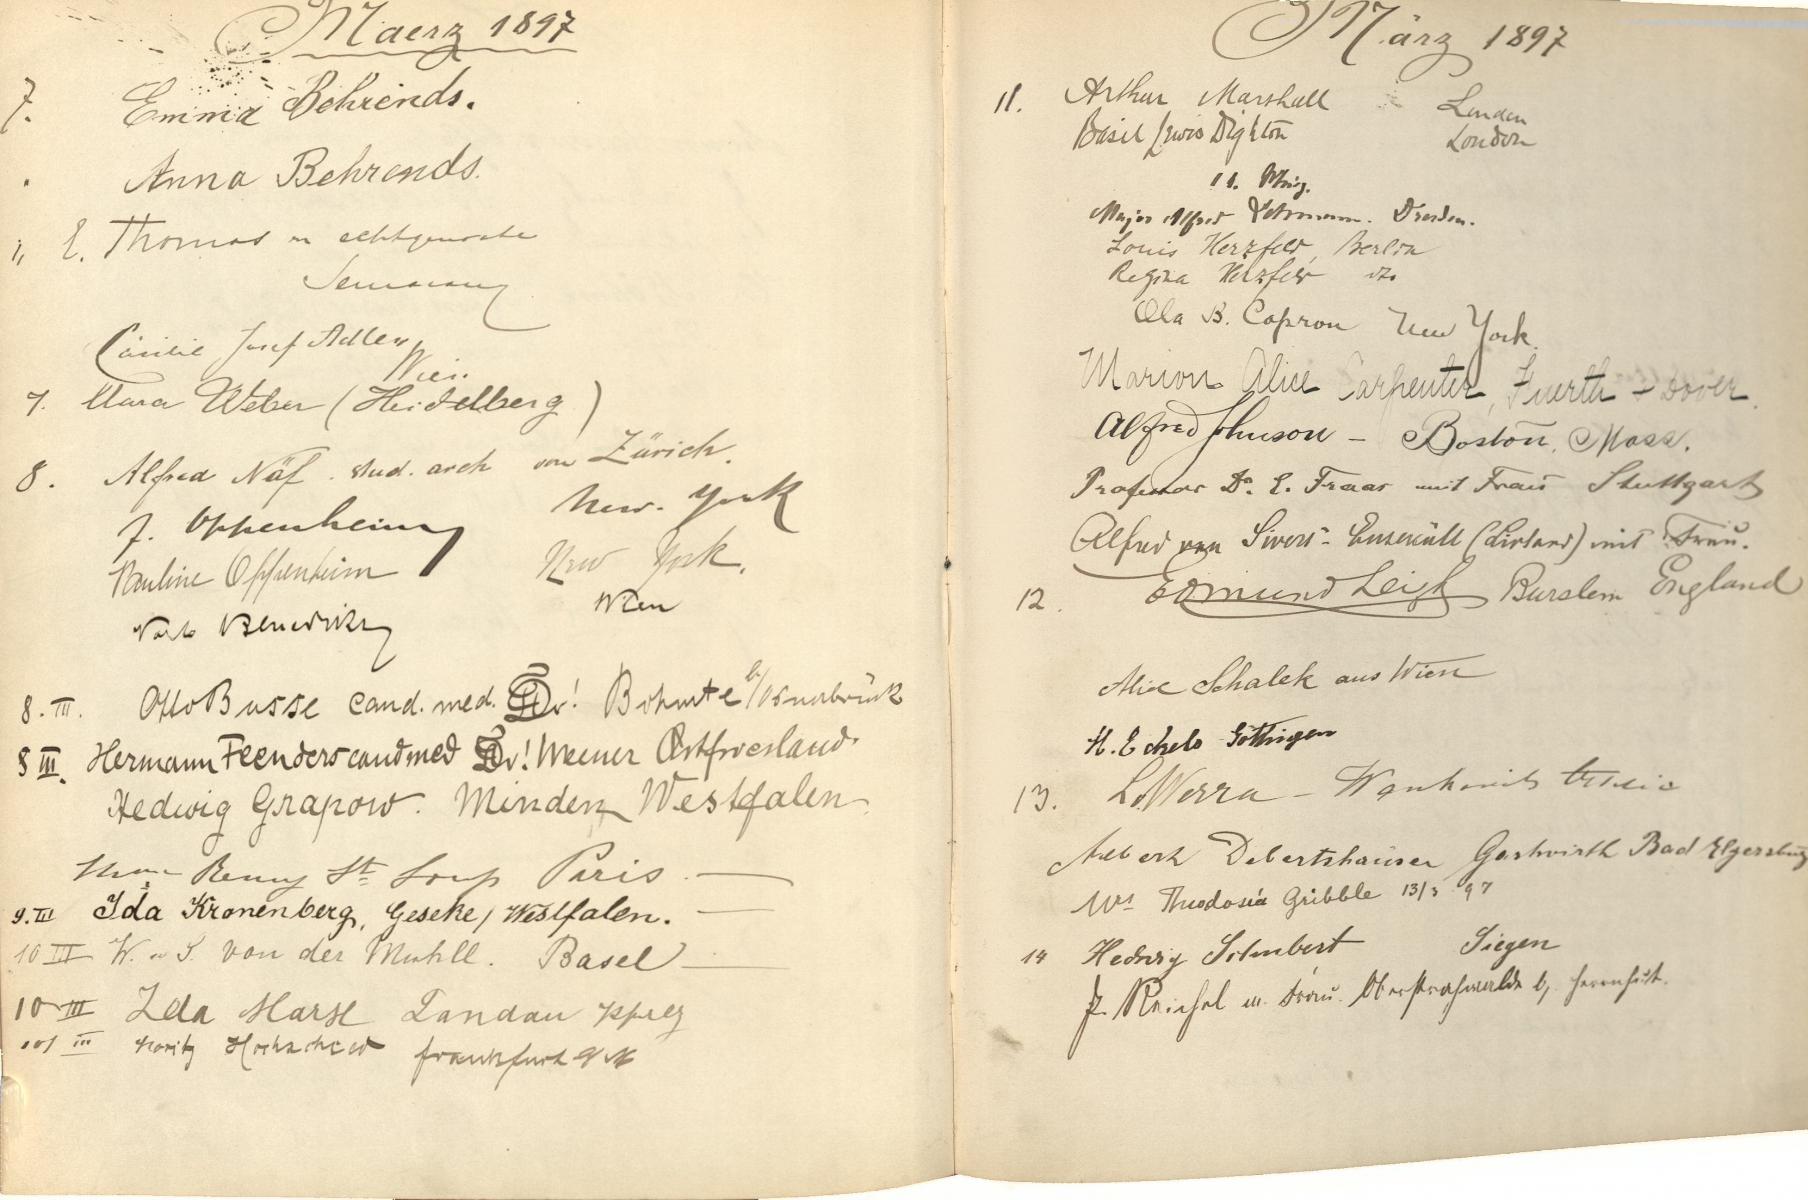 Maerz 1897
7. Emma Behrends.
Anna Behrends.
" E. Thomas en echtgenoote
Semarang
Cäcilie Josef Adler,
Wien
7. Clara Weber (Heidelberg)
8. Alfred Näf. stud. arch von Zürich.
J. Oppenheim New-York
Pauline Oppenheim New York.
Wien
8. III. Otto Busse cand. med. Bohmte b/Osnabrück
8 III. Hermann Feenders cand med Weener Ostfriesland
Hedwig Grapow. Minden Westfalen
Remy St Loup Paris —
9. III Ida Kronenberg, Geseke, Westfalen. —
10 III W. u S. von der Mühll. Basel —
10 III Ida Marx Landau Pfalz
10 III Moritz Frankfurt a/M
März 1897
11. Arthur Marshall London
Basil Lewis Dighton London
11. März.
Major Alfred Lehmann. Dresden.
Louis Herzfeld, Berlin
Regina Herzfeld do
Ola B. Capron New York.
Marion Alice Carpenter, Fuerth + Dover.
Alfred Johnson – Boston, Mass.
Professor Dr. E. Fraas mit Frau Stuttgart
Alfred von Sivers - Euseküll (Livland) mit Frau.
12. Edmund Leigh Burslem England
Alice Schalek aus Wien
H. Eckels Göttingen
13. L. Werra –
Albert Debertshäuser Gastwirth Bad Elgersburg
Mrs Theodosia Gribble 13/3 97
14 Hedwig Schubert Siegen
J. Reichel u. Frau. Oberstrahwalde b, Herrnhut.